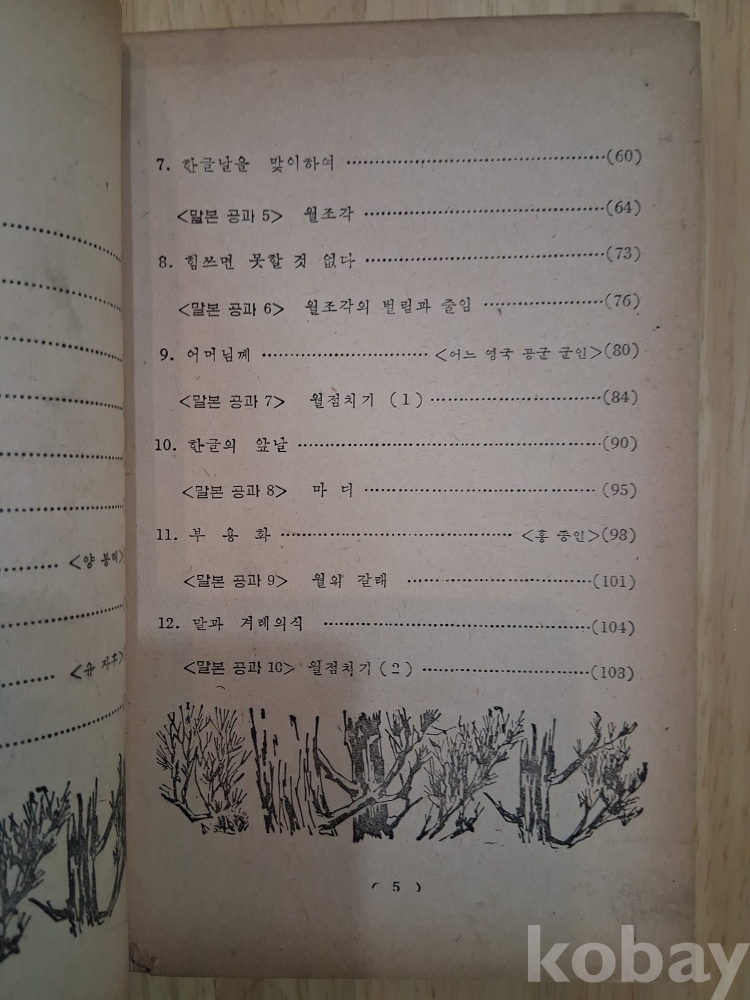 <양 봉태>
<유 자후>
7. 한글날을 맞이하여 (60)
<말본 공과 5> 월조각 (64)
8. 힘쓰면 못할 것 없다 (73)
<말본 공과 6> 월조각의 벌림과 줄임 (76)
9. 어머님께 <어느 영국 공군 군인>(80)
<말본 공과 7> 월점치기 (1) (84)
10. 한글의 앞날 (90)
<말본 공과 8> 마 디 (95)
11. 부 용 화 <홍 종인>(98)
<말본 공과 9> 월의 갈래 (101)
12. 말과 겨레의식 (104)
<말본 공과 10> 월점치기 (2) (108)
( 5 )
kobay